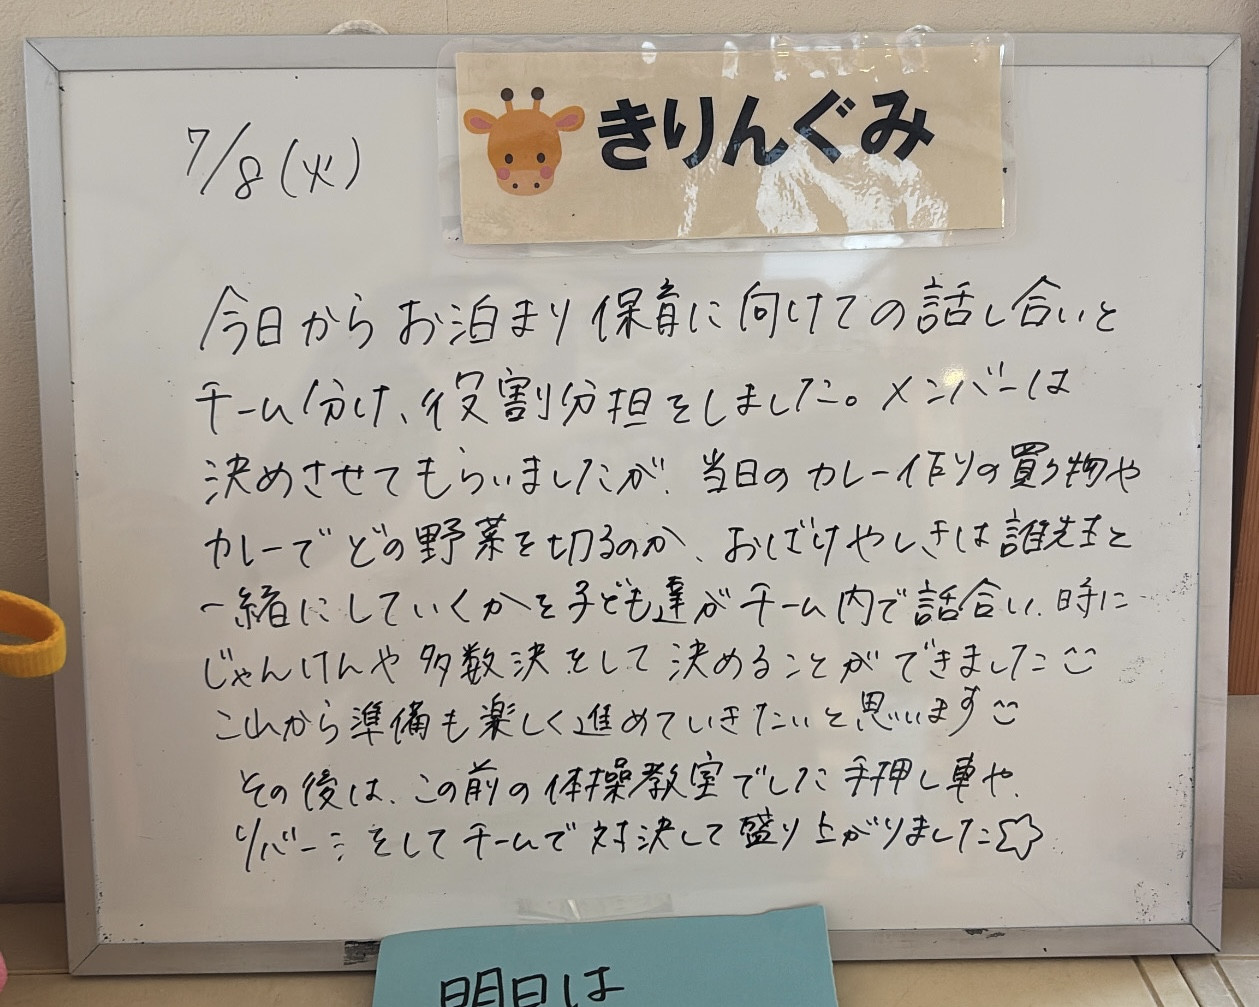 きりんぐみ
7/8(火)
今日からお泊まり保育に向けての話し合いと
チーム分け、役割分担をしました。メンバーは
決めさせてもらいましたが、当日のカレー作りの買う物や
カレーでどの野菜を切るのか、おばけやしきは誰先生と
一緒にしていくかを子ども達がチーム内で話合い、時に
じゃんけんや多数決をして決めることができました
これから準備も楽しく進めていきたいと思います
その後は、この前の体操教室でした手押し車や、
リバーシをしてチームで対決して盛り上がりました☆
明日は